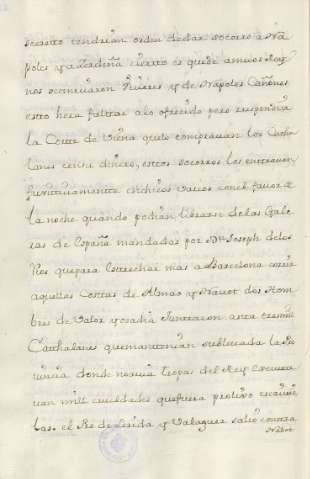 secreto tendrian orden de dar socorro a Na
poles y a Zerdeña cierto es que de ambos Rey
nos se embiaron viueres y de Napoles Cañones
esto hera faltar a lo ofrecido pero respondia
la Corte de Viena que lo comprauan los Catha
lanes con su dinero, estos socorros los entrauan
furtiuamente en chicos vasos con el fauor de
la noche quando podian librarse de las Gale
ras de España mandadas por Dn Joseph de los
Rios que para estrechar mas a Barcelona corria
aquellas Costas de Armao y Nauot dos Hom
bres de Valor y osadia Juntaron asta tres mil
Cathalanes que mantenian subleuada la Pro
uincia donde no auia tropas del Rey executa
uan mill crueldades que fuera prolixo receuir
las. el Rº de Lerida y Valaguer salio contra
Nebot